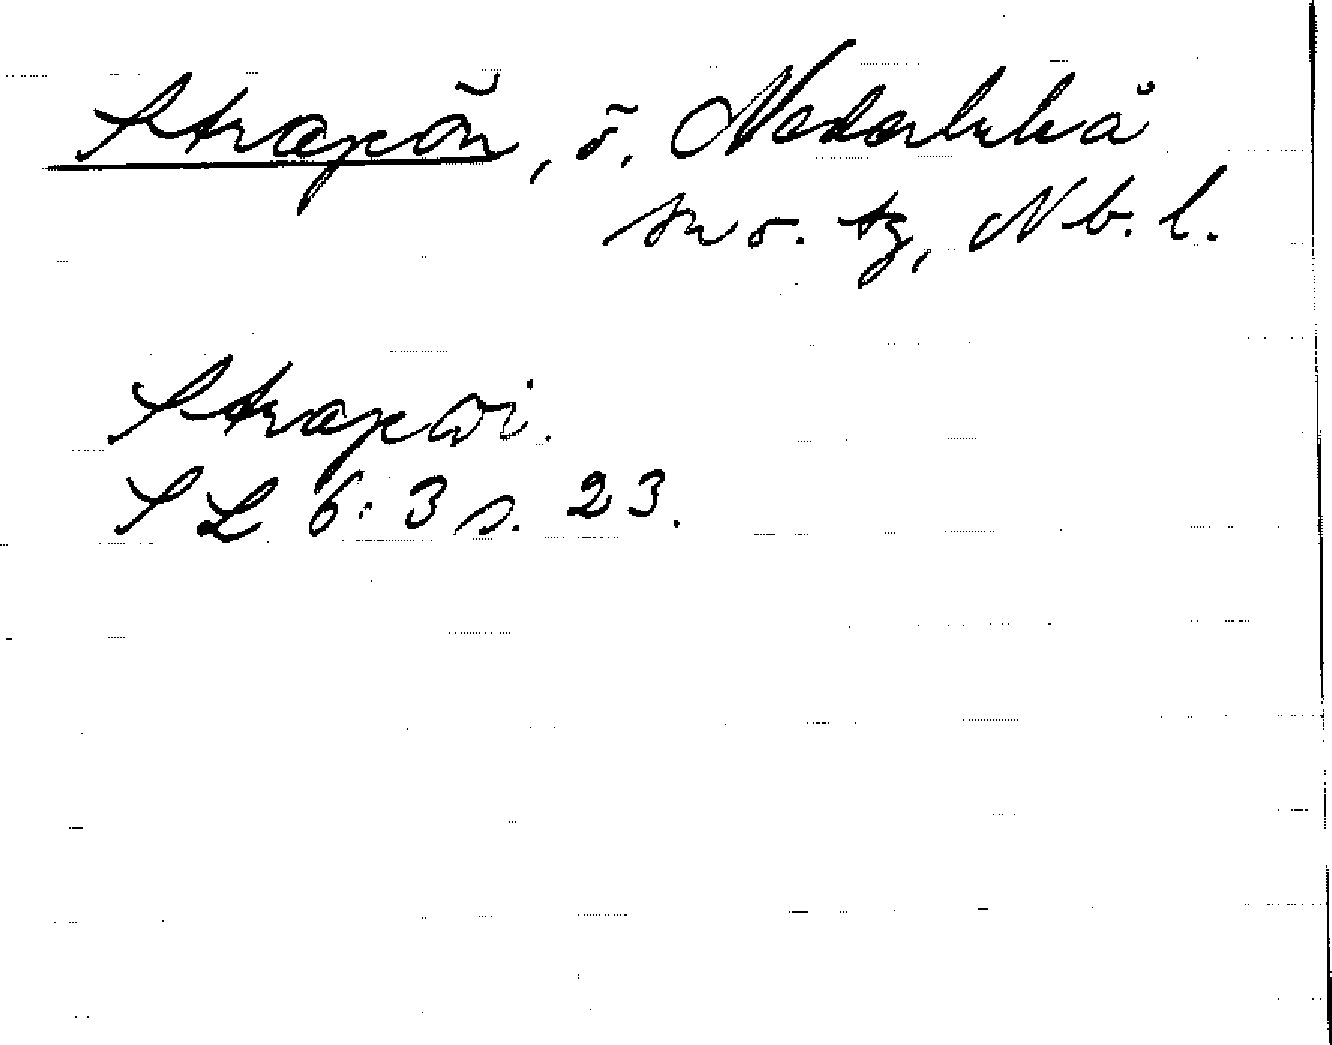 Strapön, ö, Nederluleå
sn o. tg, Nb. l.
Strapoi.
SL 6:3 s. 23.